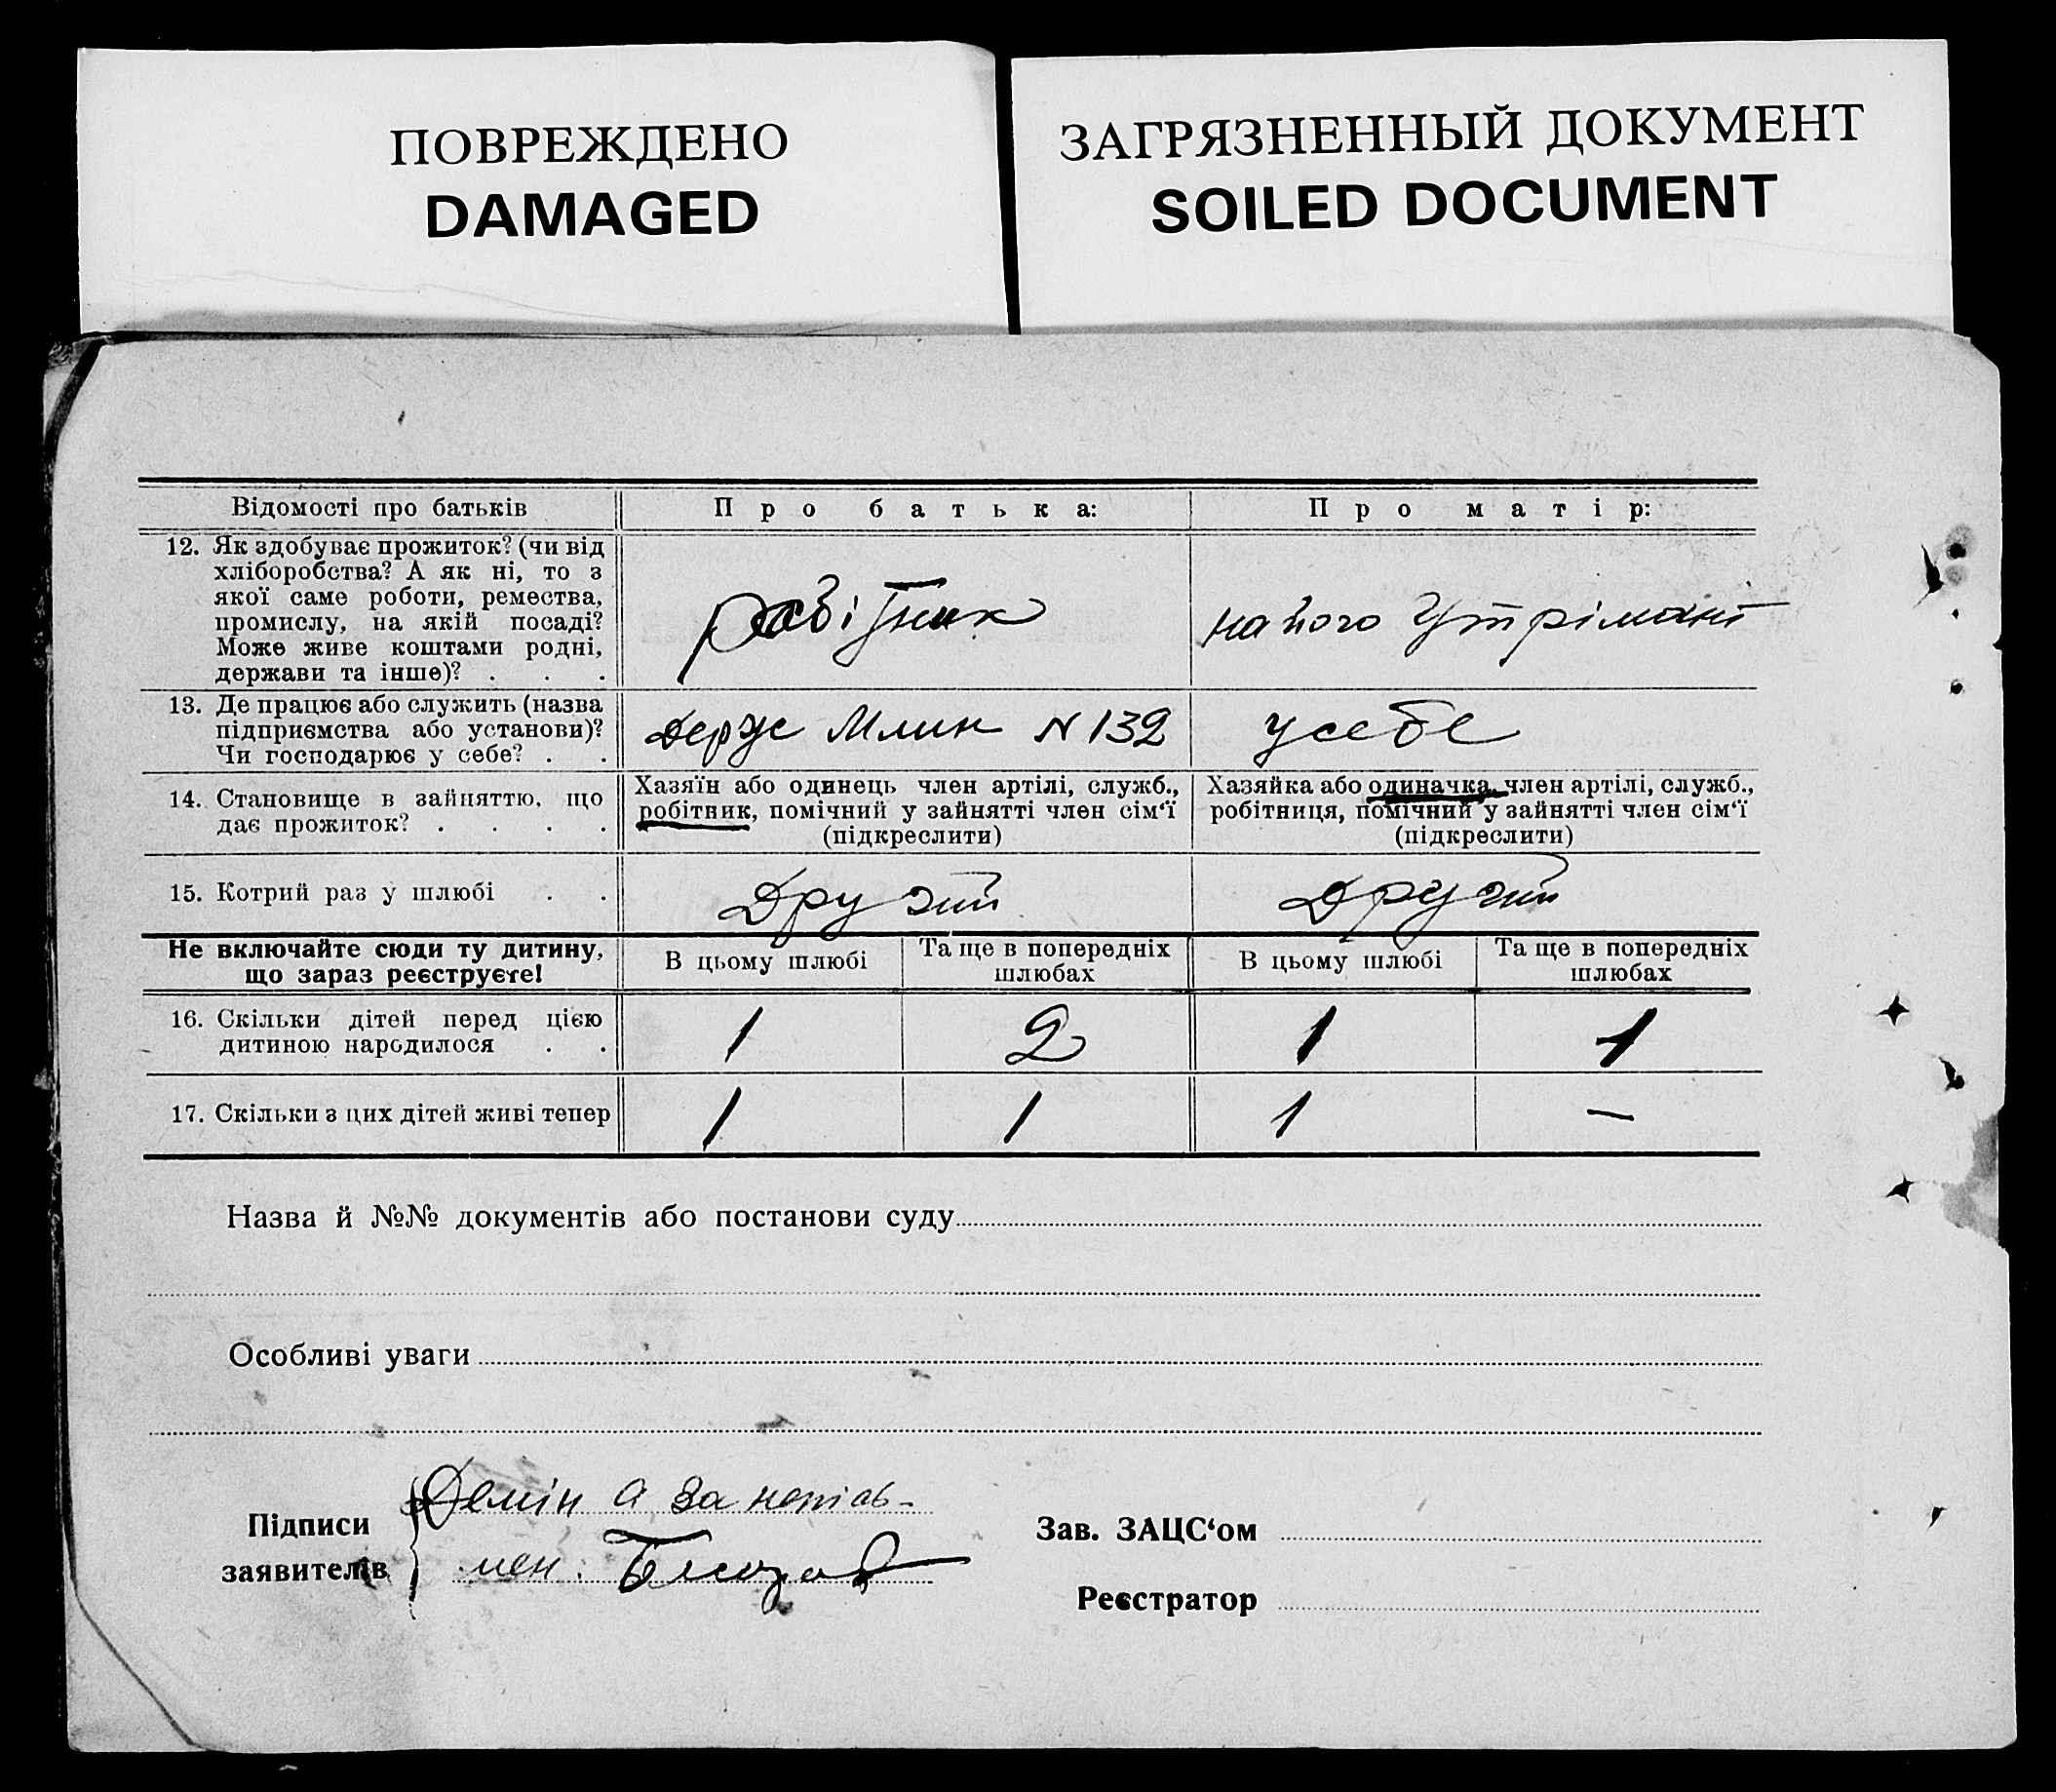 ПОВРЕЖДЕНО
DAMAGED
ЗАГРЯЗНЕННЫЙ ДОКУМЕНТ
SOILED DOCUMENT
Відомості про батьків
Про батька:
Про матір:
12. Як здобуває прожиток? (чи від
хліборобства? А як ні, то з
якої саме роботи, ремества,
промислу, на якій посаді?
Може живе коштами родні,
держави та інше)? . . .
робітник
на його утрімані
13. Де працює або служить (назва
підприємства або установи)?
Чи господарює у себе? . .
Держ Млин N 132
у себе
14. Становище в зайняттю, що
дає прожиток? . . . .
Хазяїн або одинець член артілі, служб.,
робітник, помічний у зайнятті член сім‘ї
(підкреслити)
Хазяйка або одиначка, член артілі, служб.,
робітниця, помічний у зайнятті член сім‘ї
(підкреслити)
15. Котрий раз у шлюбі . .
Другий
Другий
Не включайте сюди ту дитину,
що зараз реєструєте!
В цьому шлюбі
Та ще в попередніх
шлюбах
В цьому шлюбі
Та ще в попередніх
шлюбах
16. Скільки дітей перед цією
дитиною народилося . .
1
2
1
1
17. Скільки з цих дітей живі тепер
1
1
1
—
Назва й №№ документів або постанови суду
Особливі уваги
Підписи
заявителів
Демін а за
Зав. ЗАЦС‘ом
Реєстратор